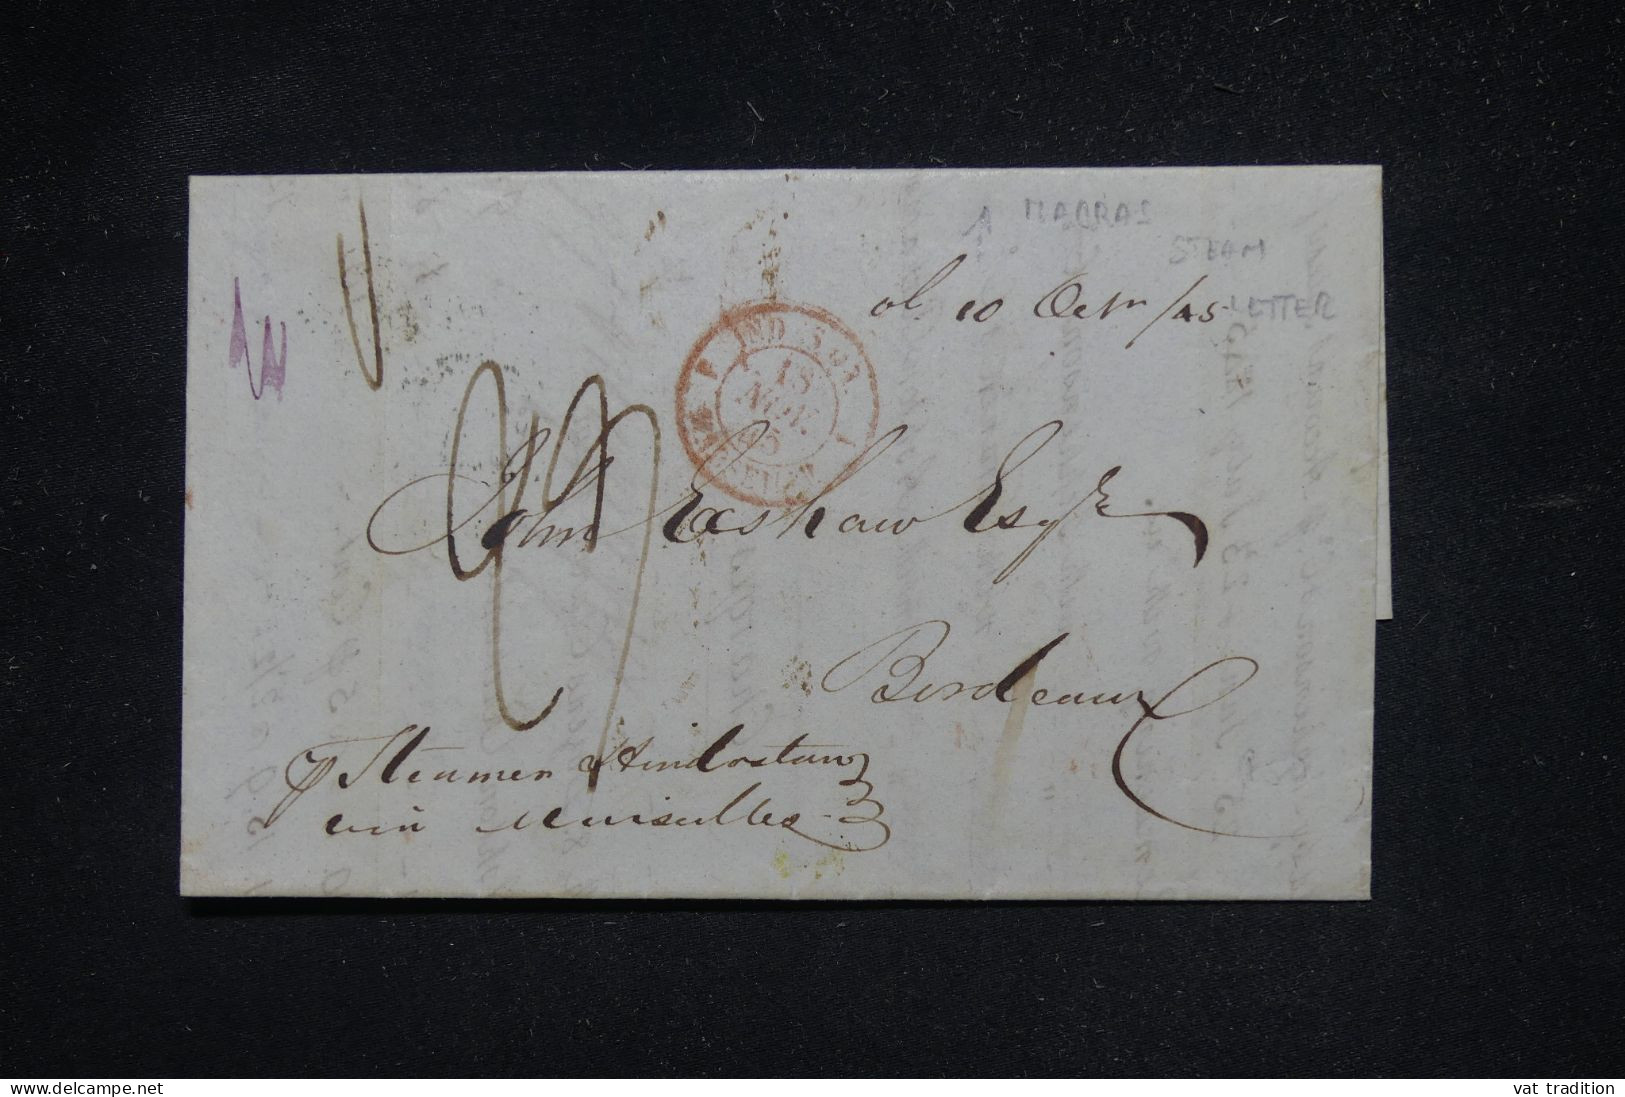 MADRAS
STEAM
LETTER
10 Octr /45
IND
18
NOV.
45
MARSEILLE
John Exshaw Esqre
Bordeaux
p Steamer Hindostan
via Marseilles
www.delcampe.net
vat tradition